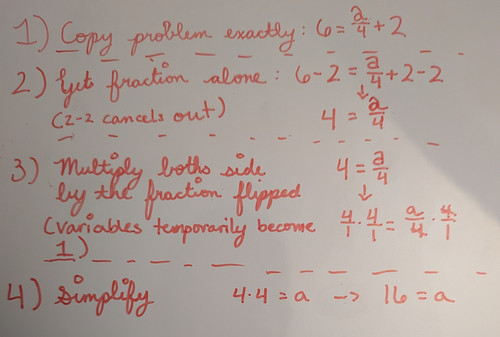 1) Copy problem exactly: 6 = a/4 + 2
2) Get fraction alone: 6 - 2 = a/4 + 2 - 2
(2-2 cancels out) ↓
4 = a/4
3) Multiply boths side 4 = a/4
by the fraction flipped ↓
(variables temporarily become 4/1 · 4/1 = a/4 · 4/1
1)
4) Simplify 4·4 = a -> 16 = a